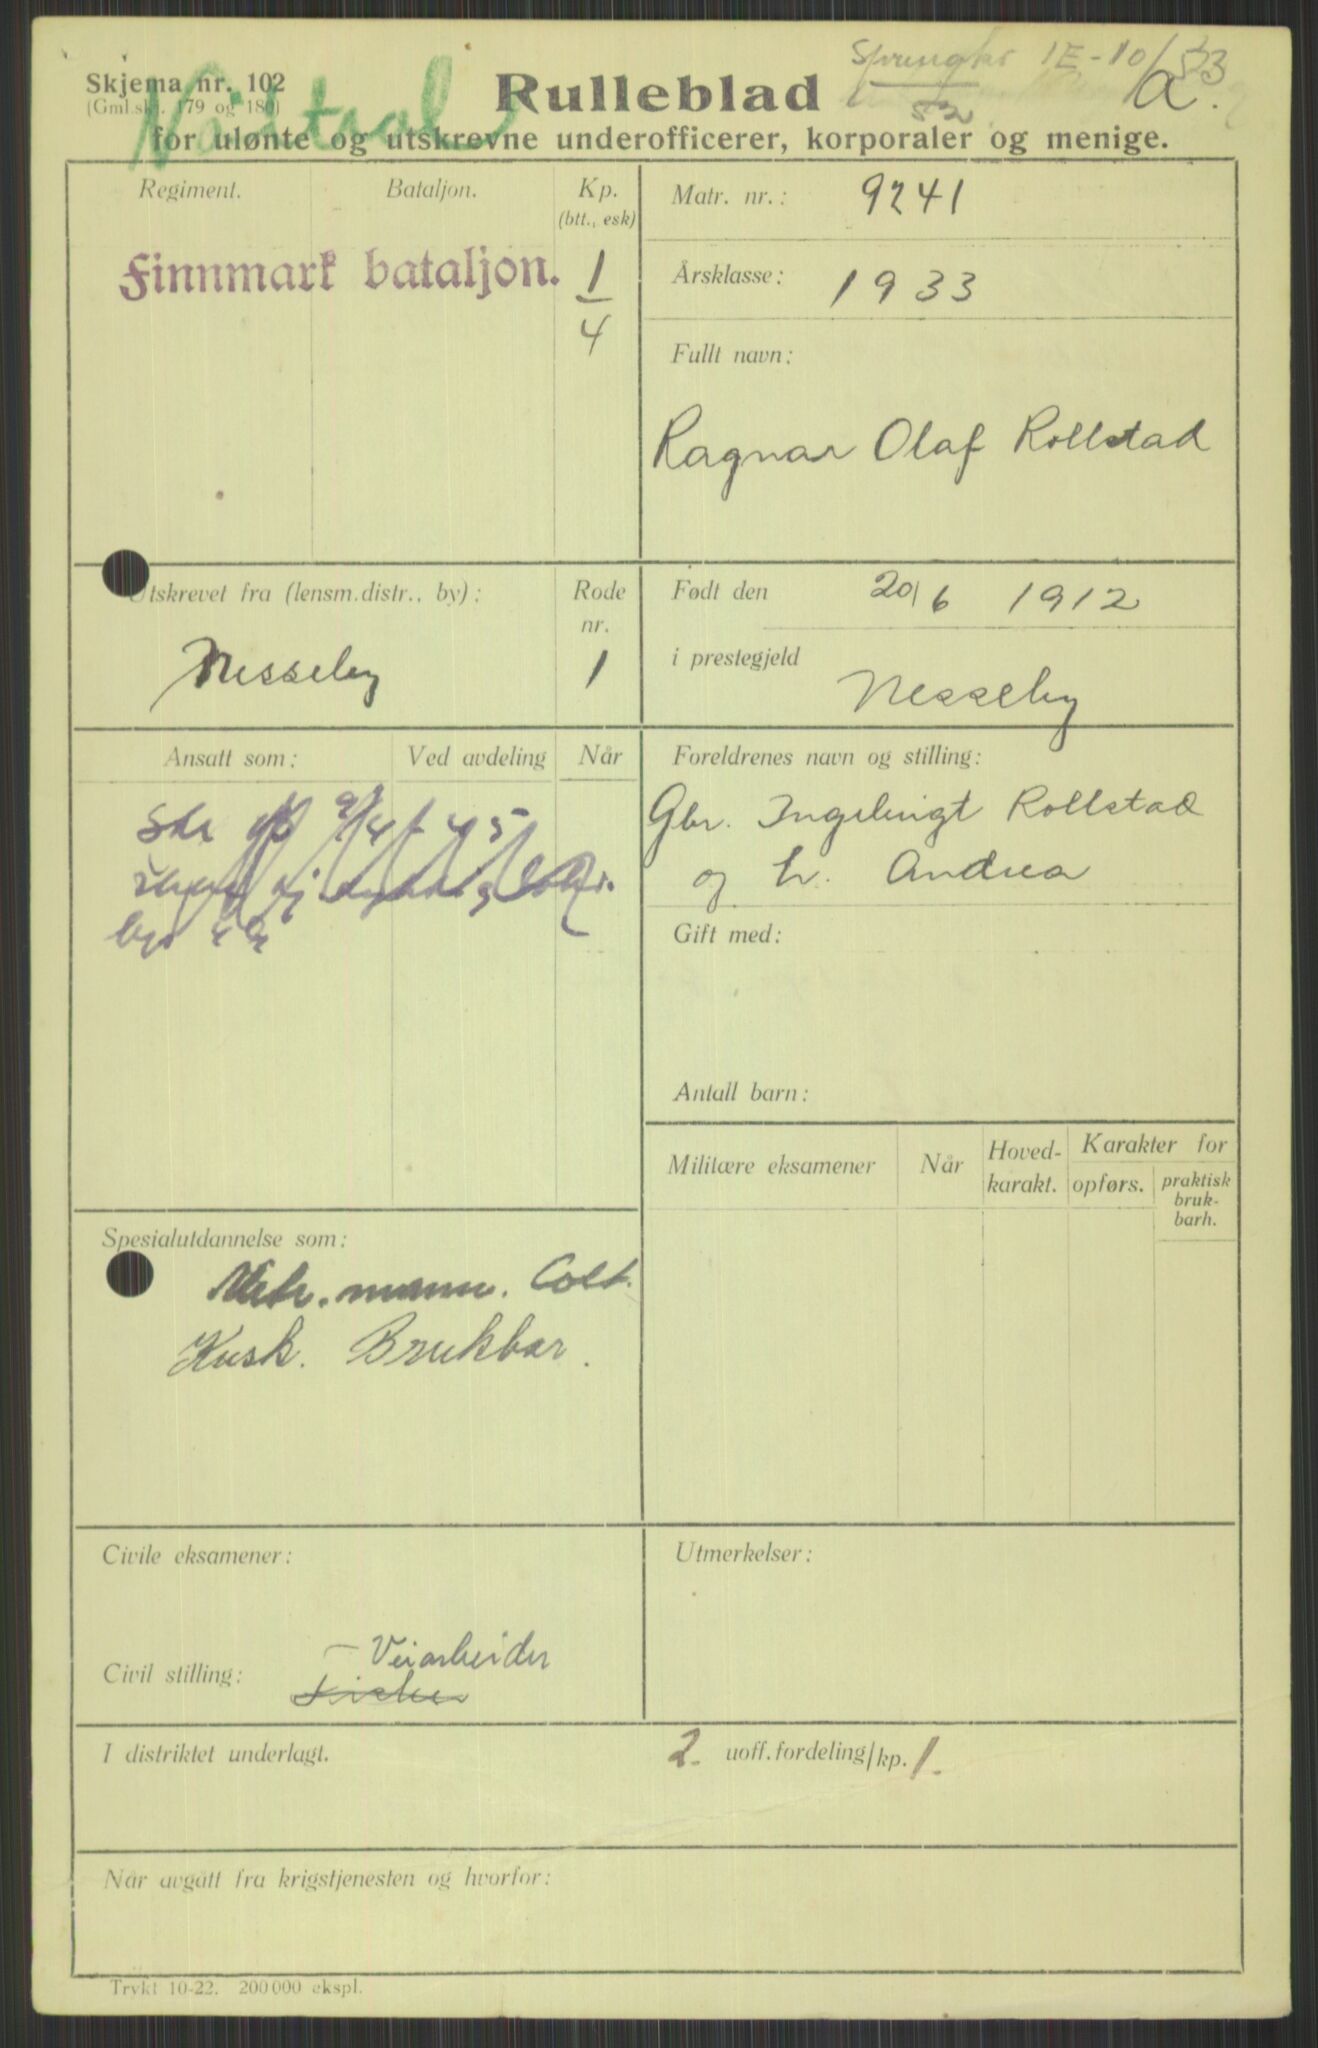 Springkr IE-10/33
52
a.
Skjema nr. 102
(Gml.skj. 179 og 180)
Rulleblad
for ulønte og utskrevne underofficerer, korporaler og menige.
Regiment. Bataljon. Kp.
(btt., esk)
Finnmark bataljon. 1
4
Matr. nr.: 9241
Årsklasse: 1933
Fullt navn:
Ragnar Olaf Rollstad
Utskrevet fra (lensm.distr., by): Rode
nr.
Nesseby 1
Født den 20/6 1912
i prestegjeld
Nesseby
Ansatt som: Ved avdeling Når
Foreldrenes navn og stilling:
Gbr. Ingebrigt Rollstad
og h. Andrea
Gift med:
Antall barn:
Militære eksamener Når Hoved-
karakt. Karakter for
opførs. praktisk
bruk-
barh.
Spesialutdannelse som:
Mitr. mann. Colt.
Kusk. Brukbar.
Civile eksamener:
Civil stilling: Veiarbeider
Fisker
Utmerkelser:
I distriktet underlagt. 2. uoff.fordeling/kp. 1.
Når avgått fra krigstjenesten og hvorfor:
Trykt 10-22. 200 000 ekspl.